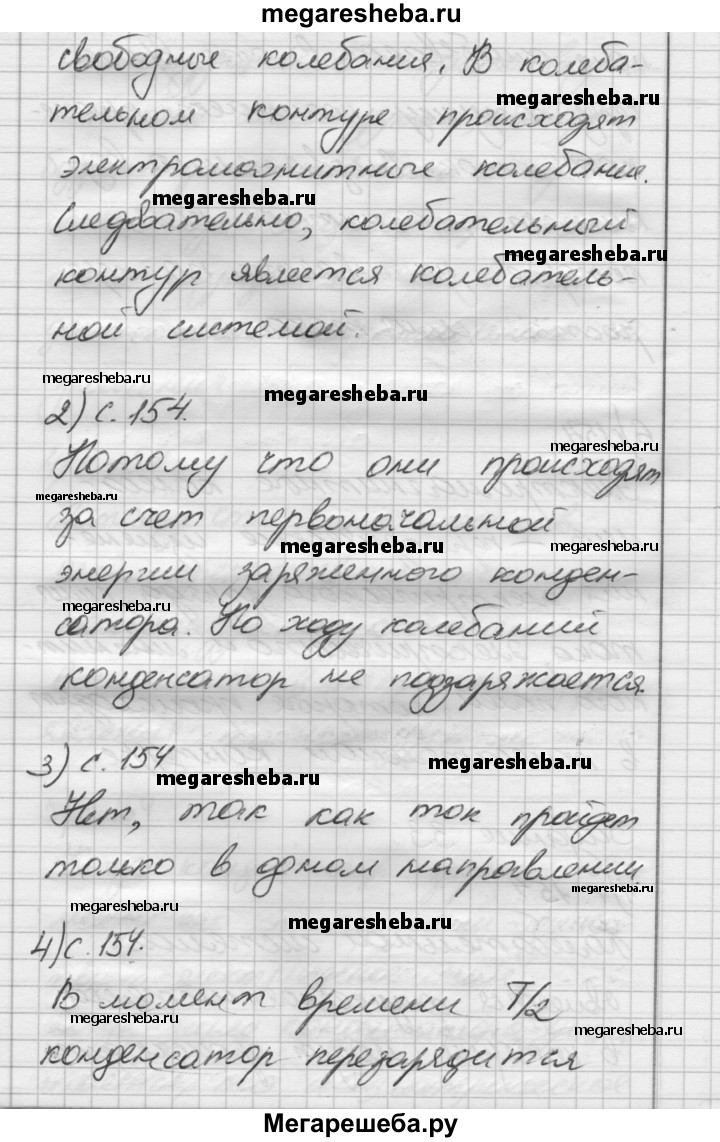 megaresheba.ru
свободные колебания. В колеба-
megaresheba.ru
тельном контуре происходят
электромагнитные колебания.
megaresheba.ru
Следовательно, колебательный
megaresheba.ru
контур является колебатель-
ной системой.
megaresheba.ru
megaresheba.ru
2) с. 154.
megaresheba.ru
Потому что они происходят
megaresheba.ru
за счет первоначальной
megaresheba.ru
megaresheba.ru
энергии заряженного конден-
megaresheba.ru
сатора. По ходу колебаний
конденсатор не подзаряжается.
3) с. 154
megaresheba.ru
megaresheba.ru
Нет, так как ток пройдет
только в одном направлении
megaresheba.ru
megaresheba.ru
megaresheba.ru
4) с. 154.
В момент времени T/2
megaresheba.ru
megaresheba.ru
конденсатор перезарядится
Мегарешеба.ру